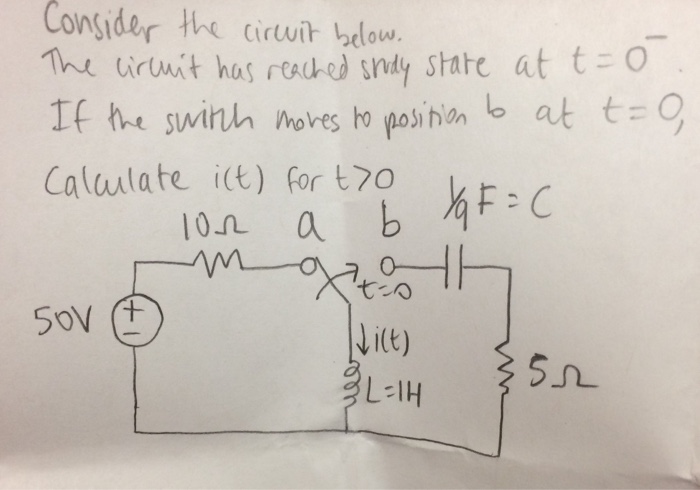 Consider the circuit below.
The circuit has reached stedy state at t=0⁻.
If the switch moves to position b at t=0,
Calculate i(t) for t>0
10Ω a b 1/9 F = C
t=0
50V + −
↓i(t)
5Ω
L=1H